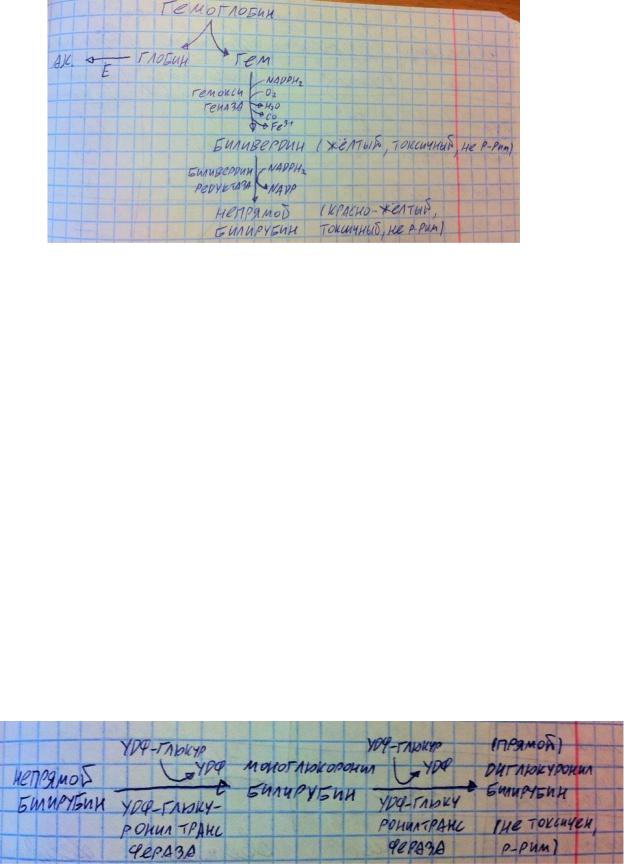 ГЕМОГЛОБИН
АК. ГЛОБИН ГЕМ
Е
NADPH2
ГЕМОКСИ O2
ГЕНАЗА H2O
CO
Fe3+
БИЛИВЕРДИН (ЖЁЛТЫЙ, ТОКСИЧНЫЙ, НЕ Р-РИМ)
БИЛИВЕРДИН NADPH2
РЕДУКТАЗА NADP
НЕПРЯМОЙ (КРАСНО-ЖЕЛТЫЙ,
БИЛИРУБИН ТОКСИЧНЫЙ, НЕ Р-РИМ)
УДФ-ГЛЮКУР УДФ-ГЛЮКУР (ПРЯМОЙ)
НЕПРЯМОЙ УДФ МОНОГЛЮКОРОНИЛ УДФ ДИГЛЮКУРОНИЛ
БИЛИРУБИН БИЛИРУБИН БИЛИРУБИН
УДФ-ГЛЮКУ- УДФ-ГЛЮКУ
РОНИЛТРАНС РОНИЛТРАНС (НЕ ТОКСИЧЕН,
ФЕРАЗА ФЕРАЗА Р-РИМ)